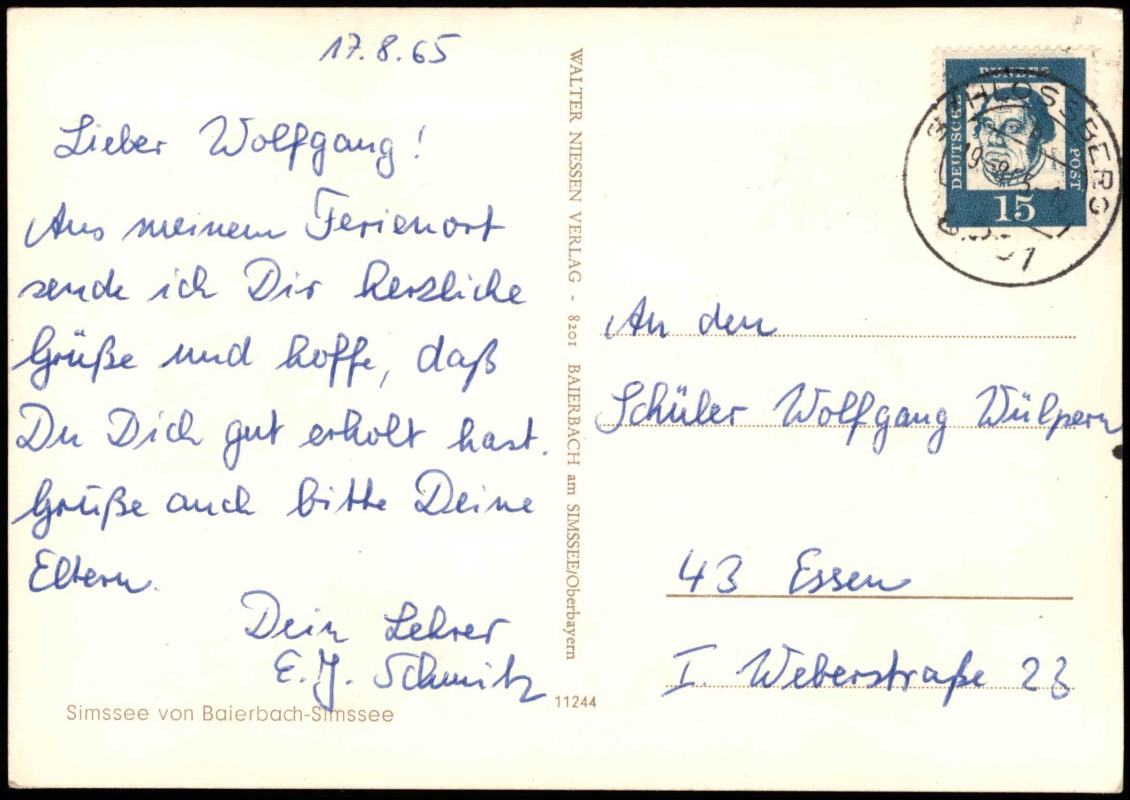 17.8.65
Lieber Wolfgang!
Aus meinem Ferienort
sende ich Dir herzliche
Grüße und hoffe, daß
Du Dich gut erholt hast.
Grüße auch bitte Deine
Eltern.
Dein Lehrer
E. J. Schmitz
Simssee von Baierbach-Simssee
11244
WALTER NIESSEN VERLAG - 8201 BAIERBACH am SIMSSEE/Oberbayern
DEUTSCHE
BUNDES
POST
15
SCHLOSSBERG
An den
Schüler Wolfgang Wülpern
43 Essen
I. Weberstraße 23